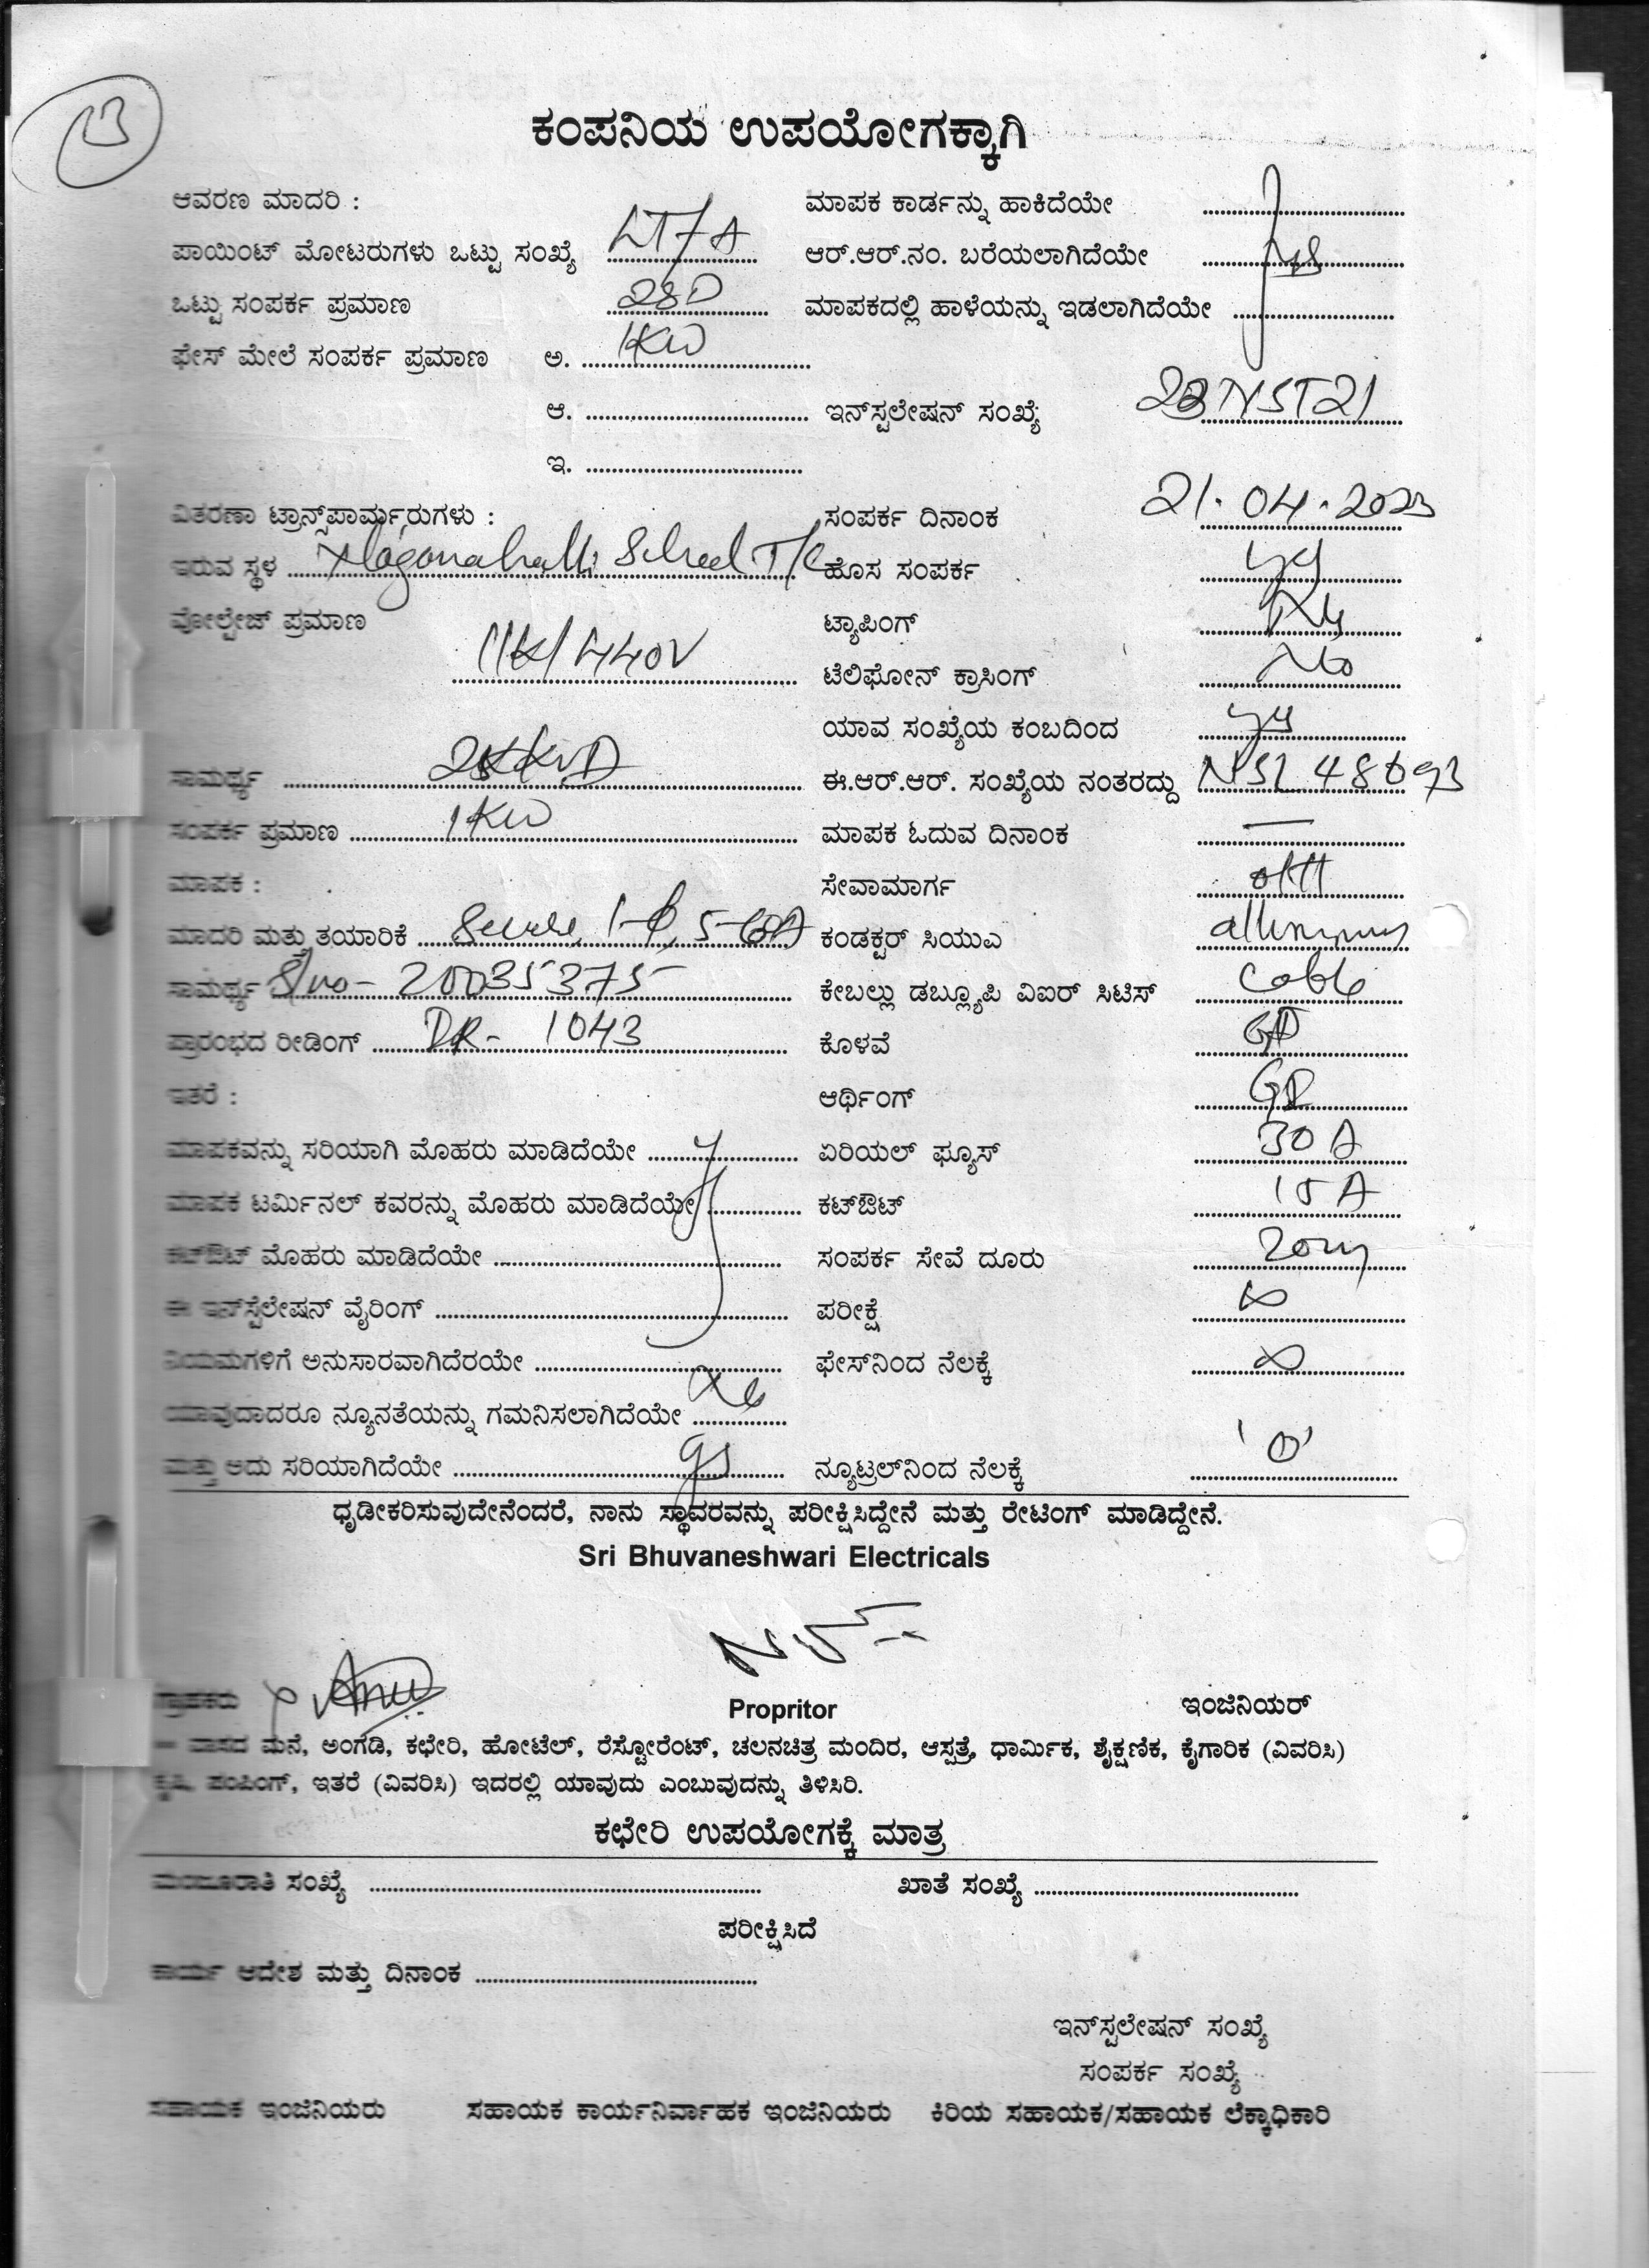 13
ಕಂಪನಿಯ ಉಪಯೋಗಕ್ಕಾಗಿ
ಆವರಣ ಮಾದರಿ : ಮಾಪಕ ಕಾರ್ಡನ್ನು ಹಾಕಿದೆಯೇ
ಪಾಯಿಂಟ್ ಮೋಟರುಗಳು ಒಟ್ಟು ಸಂಖ್ಯೆ LT7A ಆರ್.ಆರ್.ನಂ. ಬರೆಯಲಾಗಿದೆಯೇ yes
ಒಟ್ಟು ಸಂಪರ್ಕ ಪ್ರಮಾಣ ಮಾಪಕದಲ್ಲಿ ಹಾಳೆಯನ್ನು ಇಡಲಾಗಿದೆಯೇ
ಫೇಸ್ ಮೇಲೆ ಸಂಪರ್ಕ ಪ್ರಮಾಣ ಅ. 1KW
ಆ. ಇನ್‌ಸ್ಟಲೇಷನ್ ಸಂಖ್ಯೆ
ಇ.
ವಿತರಣಾ ಟ್ರಾನ್ಸ್‌ಪಾರ್ಮರುಗಳು : ಸಂಪರ್ಕ ದಿನಾಂಕ 21.04.2023
ಇರುವ ಸ್ಥಳ Nagonahalli School T/C ಹೊಸ ಸಂಪರ್ಕ yes
ವೋಲ್ಟೇಜ್ ಪ್ರಮಾಣ ಟ್ಯಾಪಿಂಗ್
11K/440V ಟೆಲಿಫೋನ್ ಕ್ರಾಸಿಂಗ್ No
ಯಾವ ಸಂಖ್ಯೆಯ ಕಂಬದಿಂದ yes
ಸಾಮರ್ಥ್ಯ ಈ.ಆರ್.ಆರ್. ಸಂಖ್ಯೆಯ ನಂತರದ್ದು NSL48693
ಸಂಪರ್ಕ ಪ್ರಮಾಣ 1KW ಮಾಪಕ ಓದುವ ದಿನಾಂಕ —
ಮಾಪಕ : ಸೇವಾಮಾರ್ಗ OH
ಮಾದರಿ ಮತ್ತು ತಯಾರಿಕೆ Secure, 1-ϕ, 5-60A ಕಂಡಕ್ಟರ್ ಸಿಯುಎ
ಸಾಮರ್ಥ್ಯ S/no- 20035375 ಕೇಬಲ್ಲು ಡಬ್ಲ್ಯೂಪಿ ವಿಐರ್ ಸಿಟಿಸ್ Cable
ಪ್ರಾರಂಭದ ರೀಡಿಂಗ್ DR- 1043 ಕೊಳವೆ GI
ಇತರೆ : ಆರ್ಥಿಂಗ್
ಮಾಪಕವನ್ನು ಸರಿಯಾಗಿ ಮೊಹರು ಮಾಡಿದೆಯೇ ಏರಿಯಲ್ ಫ್ಯೂಸ್ 30 A
ಮಾಪಕ ಟರ್ಮಿನಲ್ ಕವರನ್ನು ಮೊಹರು ಮಾಡಿದೆಯೇ ಕಟ್‌ಔಟ್ 15 A
ಕಟ್‌ಔಟ್ ಮೊಹರು ಮಾಡಿದೆಯೇ ಸಂಪರ್ಕ ಸೇವೆ ದೂರು 20m
ಈ ಇನ್‌ಸ್ಟೆಲೇಷನ್ ವೈರಿಂಗ್ ಪರೀಕ್ಷೆ ∞
ನಿಯಮಗಳಿಗೆ ಅನುಸಾರವಾಗಿದೆರಯೇ ಫೇಸ್‌ನಿಂದ ನೆಲಕ್ಕೆ ∞
ಯಾವುದಾದರೂ ನ್ಯೂನತೆಯನ್ನು ಗಮನಿಸಲಾಗಿದೆಯೇ
ಮತ್ತು ಅದು ಸರಿಯಾಗಿದೆಯೇ yes ನ್ಯೂಟ್ರಲ್‌ನಿಂದ ನೆಲಕ್ಕೆ '0'
ಧೃಡೀಕರಿಸುವುದೇನೆಂದರೆ, ನಾನು ಸ್ಥಾವರವನ್ನು ಪರೀಕ್ಷಿಸಿದ್ದೇನೆ ಮತ್ತು ರೇಟಿಂಗ್ ಮಾಡಿದ್ದೇನೆ.
Sri Bhuvaneshwari Electricals
ಗ್ರಾಹಕರು Propritor ಇಂಜಿನಿಯರ್
ವಾಸದ ಮನೆ, ಅಂಗಡಿ, ಕಛೇರಿ, ಹೋಟೆಲ್, ರೆಸ್ಟೋರೆಂಟ್, ಚಲನಚಿತ್ರ ಮಂದಿರ, ಆಸ್ಪತ್ರೆ, ಧಾರ್ಮಿಕ, ಶೈಕ್ಷಣಿಕ, ಕೈಗಾರಿಕ (ವಿವರಿಸಿ)
ಕೃಷಿ, ಪಂಪಿಂಗ್, ಇತರೆ (ವಿವರಿಸಿ) ಇದರಲ್ಲಿ ಯಾವುದು ಎಂಬುವುದನ್ನು ತಿಳಿಸಿರಿ.
ಕಛೇರಿ ಉಪಯೋಗಕ್ಕೆ ಮಾತ್ರ
ಮಂಜೂರಾತಿ ಸಂಖ್ಯೆ ಖಾತೆ ಸಂಖ್ಯೆ
ಪರೀಕ್ಷಿಸಿದೆ
ಕಾರ್ಯ ಆದೇಶ ಮತ್ತು ದಿನಾಂಕ
ಇನ್‌ಸ್ಟಲೇಷನ್ ಸಂಖ್ಯೆ
ಸಂಪರ್ಕ ಸಂಖ್ಯೆ
ಸಹಾಯಕ ಇಂಜಿನಿಯರು ಸಹಾಯಕ ಕಾರ್ಯನಿರ್ವಾಹಕ ಇಂಜಿನಿಯರು ಕಿರಿಯ ಸಹಾಯಕ/ಸಹಾಯಕ ಲೆಕ್ಕಾಧಿಕಾರಿ